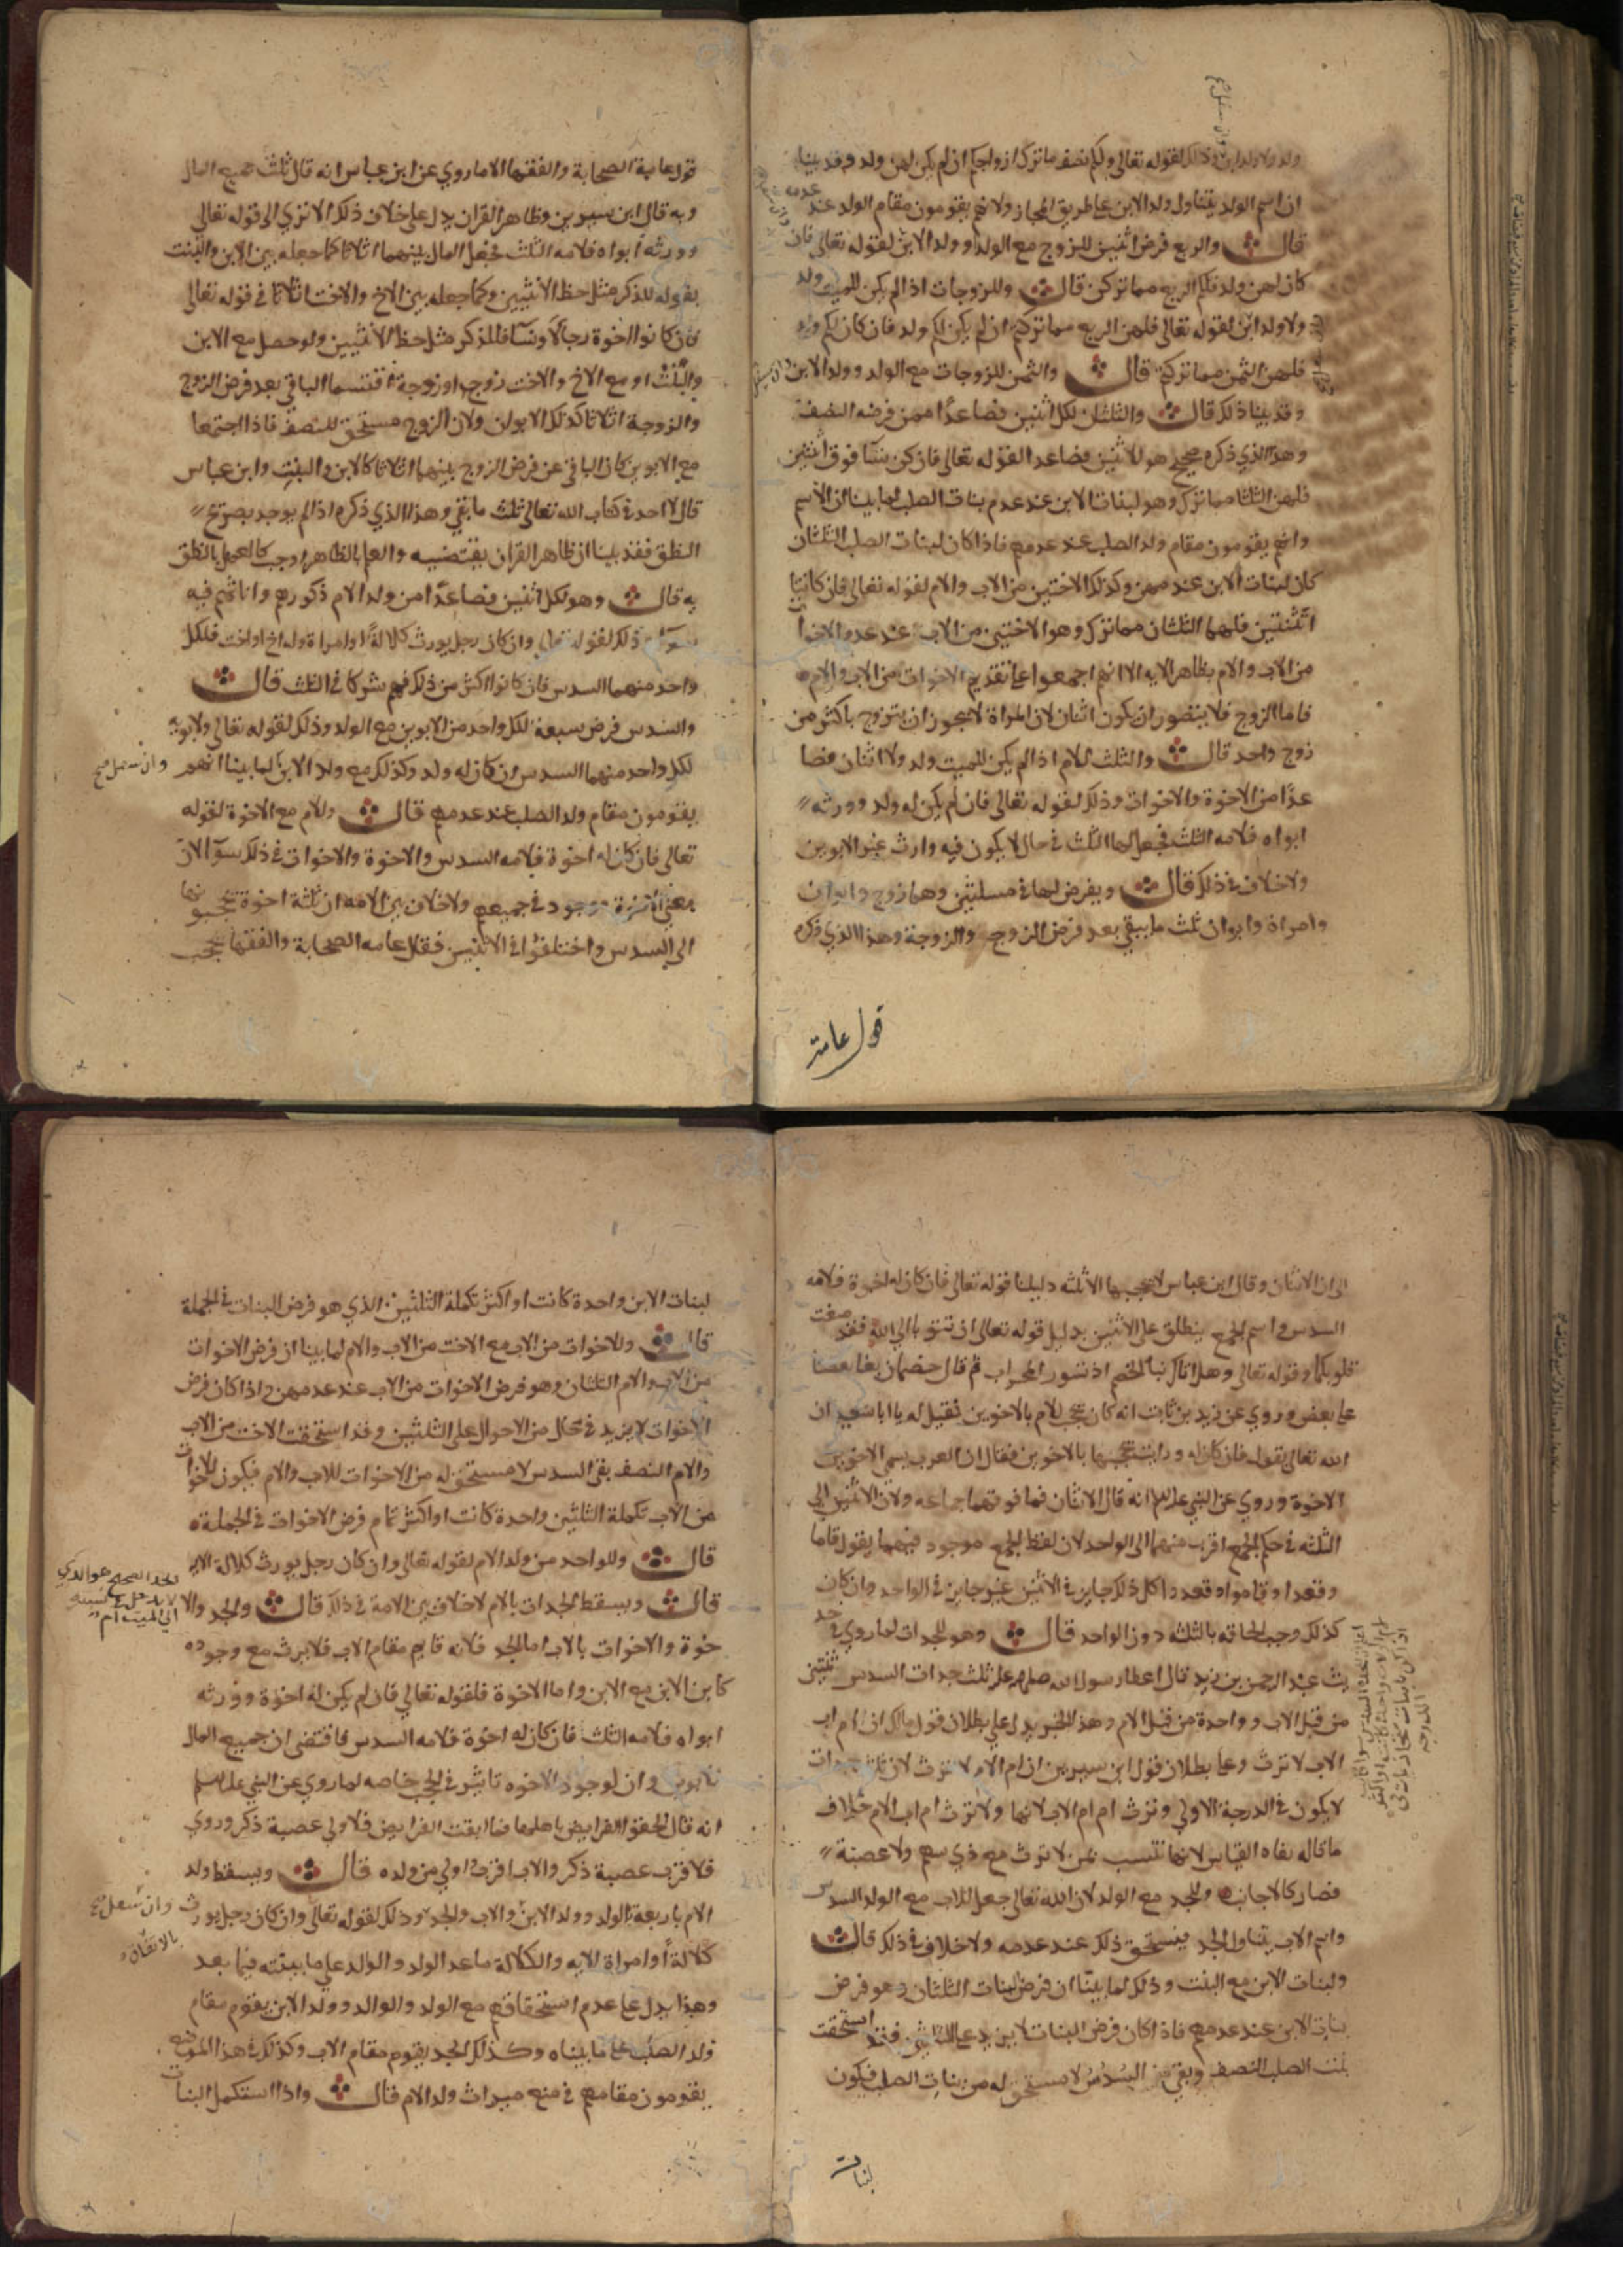 ولد ولا ولد ابن وذلك لقوله تعالى ولكم نصف ما ترك ازواجكم ان لم يكن لهن ولد وقد بينا
ان اسم الولد يتناول ولد الابن على طريق المجاز ولانهم يقومون مقام الولد عند عدمه
قال والربع فرض اثنين للزوج مع الولد او ولد الابن لقوله تعالى فان
كان لهن ولد فلكم الربع مما تركن قال وللزوجات اذا لم يكن للميت ولد
ولا ولد ابن لقوله تعالى فلهن الربع مما تركتم ان لم يكن لكم ولد فان كان لكم ولد
فلهن الثمن مما تركتم قال والثمن للزوجات مع الولد وولد الابن
وقد بينا ذلك قال والثلثان لكل اثنين فصاعدا ممن فرضه النصف
وهذا الذي ذكره صحيح هو للاثنين فصاعدا لقوله تعالى فان كن نسا فوق اثنتين
فلهن الثلثا مما ترك وهو لبنات الابن عند عدم بنات الصلب لما بينا ان الاسم
وانهم يقومون مقام ولد الصلب عند عدمهم فاذا كان لبنات الصلب الثلثان
كان لبنات الابن عند عدمهن وكذلك الاختين من الاب والام لقوله تعالى فان كانتا
اثنتين فلهما الثلثان مما ترك وهو الاختين من الاب عند عدم الاخوات
من الاب والام بظاهر الايه الا انهم اجمعوا على تقديم الاخوات من الاب والام
فاما الزوج فلا يتصور ان يكون اثنان لان المراة لا يجوز ان تتزوج باكثر من
زوج واحد قال والثلث للام اذا لم يكن للميت ولد ولا اثنان فصا
عدا من الاخوة والاخوات وذلك لقوله تعالى فان لم يكن له ولد وورثه
ابواه فلامه الثلث فجعل لها الثلث في حال لا يكون فيه وارث غير الابوين
ولا خلاف في ذلك قال ويفرض لها في مسلتين وهما زوج وابوان
وامراة وابوان ثلث ما يبقى بعد فرض الزوج والزوجة وهذا الذي ذكره
قول عامة
قول عامة الصحابة والفقها الا ما روي عن ابن عباس انه قال ثلث جميع المال
وبه قال ابن سيرين وظاهر القران يدل على خلاف ذلك الا ترى الى قوله تعالى
وورثه ابواه فلامه الثلث فجعل المال بينهما اثلاثا كما جعله بين الابن والبنت
بقوله للذكر مثل حظ الانثيين وكما جعله بين الاخ والاخت اثلاثا في قوله تعالى
فان كانوا اخوة رجالا ونسا فللذكر مثل حظ الانثيين ولو حصل مع الابن
والبنت او مع الاخ والاخت زوج او زوجة اقتسما الباقي بعد فرض الزوج
والزوجة اثلاثا كذلك الابوان ولان الزوج مستحق للنصف فاذا اجتمعا
مع الابوين كان الباقي عن فرض الزوج بينهما اثلاثا كالابن والبنت وابن عباس
قال لا احد في كتاب الله تعالى ثلث ما بقي وهذا الذي ذكره اذا لم يوجد بصريح
النطق فقد بينا ان ظاهر القران يقتضيه والعمل بالظاهر واجب كالعمل بالنطق
به قال وهو لكل اثنين فصاعدا من ولد الام ذكورهم واناثهم فيه
سوآ وذلك لقوله تعالى وان كان رجل يورث كلالة او امراة وله اخ او اخت فلكل
واحد منهما السدس فان كانوا اكثر من ذلك فهم شركا في الثلث قال
والسدس فرض سبعة لكل واحد من الابوين مع الولد وذلك لقوله تعالى ولابويه
لكل واحد منهما السدس ان كان له ولد وكذلك مع ولد الابن لما بينا انهم
وان سفل صح
يقومون مقام ولد الصلب عند عدمهم قال وللام مع الاخوة لقوله
تعالى فان كان له اخوة فلامه السدس والاخوة والاخوات في ذلك سوآ لان
معنى الاخوة موجود في جميعهم ولا خلاف بين الامه ان ثلثة اخوة تحجبونها
الى السدس واختلفوا في الاثنين فقال عامه الصحابة والفقها تحجب
الى ان الاثنان وقال ابن عباس لا يحجبها الا ثلثه دليلنا قوله تعالى فان كان له اخوة فلامه
السدس واسم الجمع ينطلق على الاثنين بدليل قوله تعالى ان تتوبا الى الله فقد صغت
قلوبكما وقوله تعالى وهل اتاك نبا الخصم اذ تسور المحراب ثم قال خصمان بغا بعضنا
على بعض وروي عن زيد بن ثابت انه كان يحجب الام بالاخوين فقيل له يا ابا سعيد ان
الله تعالى يقول فان كان له وانت تحجبها بالاخوين فقال ان العرب يسمي الاخوين
الاخوة وروي عن النبي عليه السلام انه قال الاثنان فما فوقهما جماعه ولان الاثنين الى
الثلثه في حكم الجمع اقرب منهما الى الواحد لان لفظ الجمع موجود فيهما يقول قاما
وقعدا وقاموا وقعدوا كل ذلك جايز في الاثنين غير جايز في الواحد وان كان
كذلك وجب الحاقه بالثلثه دون الواحد قال وهو للجدات لما روي في حد
يث عبد الرحمن بن زيد قال اعطا رسول الله صلى الله عليه ثلث جدات السدس ثنتين
من قبل الاب وواحدة من قبل الام وهذا الخبر يدل على بطلان قول مالك ان ام اب
الاب لا ترث وعلى بطلان قول ابن سيرين ان ام الاب لا ترث لان ثلث جدات
لا يكون في الدرجة الاولى وترث ام ام الاب لانها ولا ترث ام اب الام خلاف
ما قاله نفاه القياس لانها تنتسب بمن لا ترث مع ذي سهم ولا عصبة
فصار كالاجانب وللجد مع الولد لان الله تعالى جعل للاب مع الولد السدس
واسم الاب يتناول الجد فيستحق ذلك عند عدمه ولا خلاف في ذلك قال
ولبنات الابن مع البنت وذلك لما بينا ان فرض لبنات الثلثان وهو فرض
بنات الابن عند عدمهم فاذا كان فرض البنات لا يزيد على الثلثين فقد استحقت
بنت الصلب النصف وبقي من السدس لا مستحق له من بنات الصلب فيكون
لبنات
لبنات الابن واحدة كانت او اكثر تكملة الثلثين الذي هو فرض البنات في الجملة
قال وللاخوات من الاب مع الاخت من الاب والام لما بينا ان فرض الاخوات
من الاب والام الثلثان وهو فرض الاخوات من الاب عند عدمهن واذا كان فرض
الاخوات لا يزيد في محال من الاحوال على الثلثين وقد استحقت الاخت من الاب
والام النصف بقى السدس لا مستحق له من الاخوات للاب والام فيكون للاخوات
من الاب تكملة الثلثين واحدة كانت او اكثر تمام فرض الاخوات في الجملة
قال وللواحد من ولد الام لقوله تعالى وان كان رجل يورث كلالة الايه
قال ويسقط الجدات بالام لا خلاف بين الامة في ذلك قال والجد والا
الجد الصحيح هو الذي
لا يدخل في نسبته
الى الميت ام
خوة والاخوات بالاب اما الجد فلانه قايم مقام الاب فلا يرث مع وجوده
كابن الابن مع الابن واما الاخوة فلقوله تعالى فان لم يكن له اخوة وورثه
ابواه فلامه الثلث فان كان له اخوة فلامه السدس فاقتضى ان جميع المال
للابوين وان لوجود الاخوه تاثير في الحجب خاصه لما روي عن النبي عليه السلم
انه قال الحقوا الفرايض باهلها فما ابقت الفرايض فلاولى عصبة ذكر وروي
فلاقرب عصبة ذكر والاب اقرب اولى من ولده قال ويسقط ولد
الام باربعة بالولد وولد الابن والاب والجد وذلك لقوله تعالى وان كان رجل يورث
وان سفل صح
بالاتفاق
كلالة او امراة الايه والكلالة ما عدا الولد والوالد على ما بينته فيما بعد
وهذا يدل على عدم استحقاقهم مع الولد والوالد وولد الابن يقوم مقام
ولد الصلب على ما بيناه وكذلك الجد يقوم مقام الاب وكذلك في هذا الموضع
يقومون مقامهم في منع ميراث ولد الام قال واذا استكمل البنات